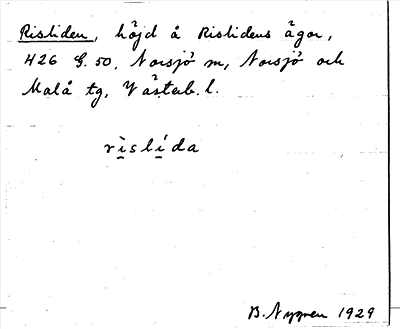 Risliden, höjd å Rislidens ägor,
426 G. 50, Norsjö m, Norsjö och
Malå tg, Västerb. l.
rìslída
B. Nygren 1929